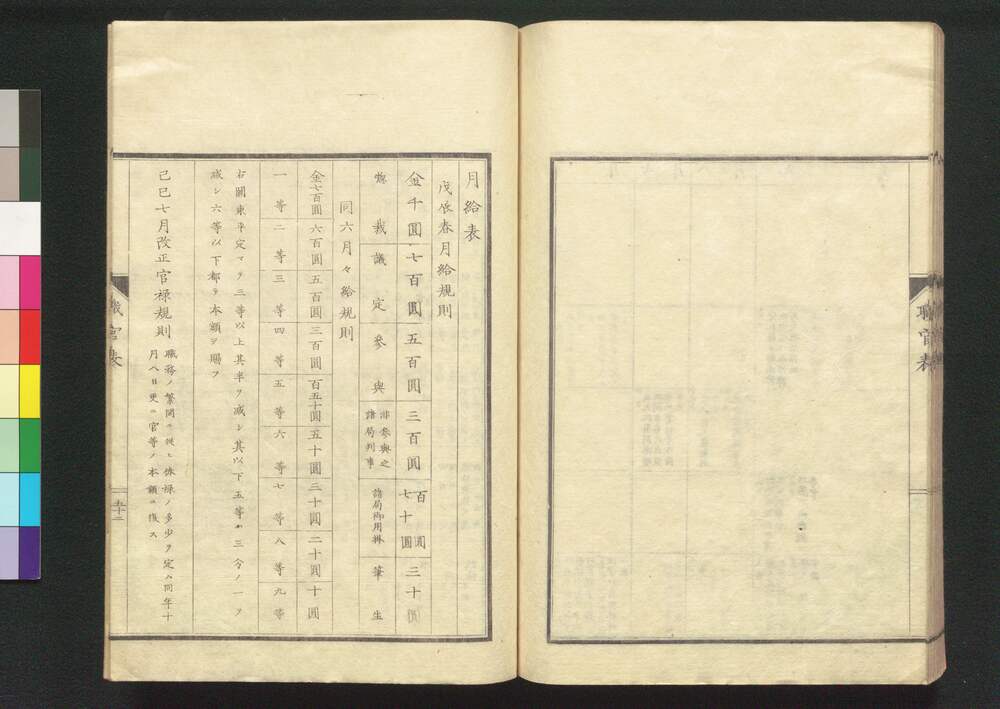 職官表
月給表
戊辰春月給規則
金千圓 七百圓 五百圓 三百圓 百圓 七十圓 三十圓
惣裁 議定 參與 非參與之諸局判事 諸局御用掛 筆生
同六月々給規則
金七百圓 六百圓 五百圓 三百圓 百五十圓 五十圓 三十圓 二十圓 十圓
一等 二等 三等 四等 五等 六等 七等 八等 九等
右關東平定マテ三等以上其半ヲ減シ其以下五等ハ三分ノ一ヲ
減シ六等以下都テ本額ヲ賜フ
己巳七月改正官祿規則
職務ノ繁閑ニ從ヒ俸祿ノ多少ヲ定ム同年十
月八日更ニ官等ノ本額ニ復ス
職官表
五十二